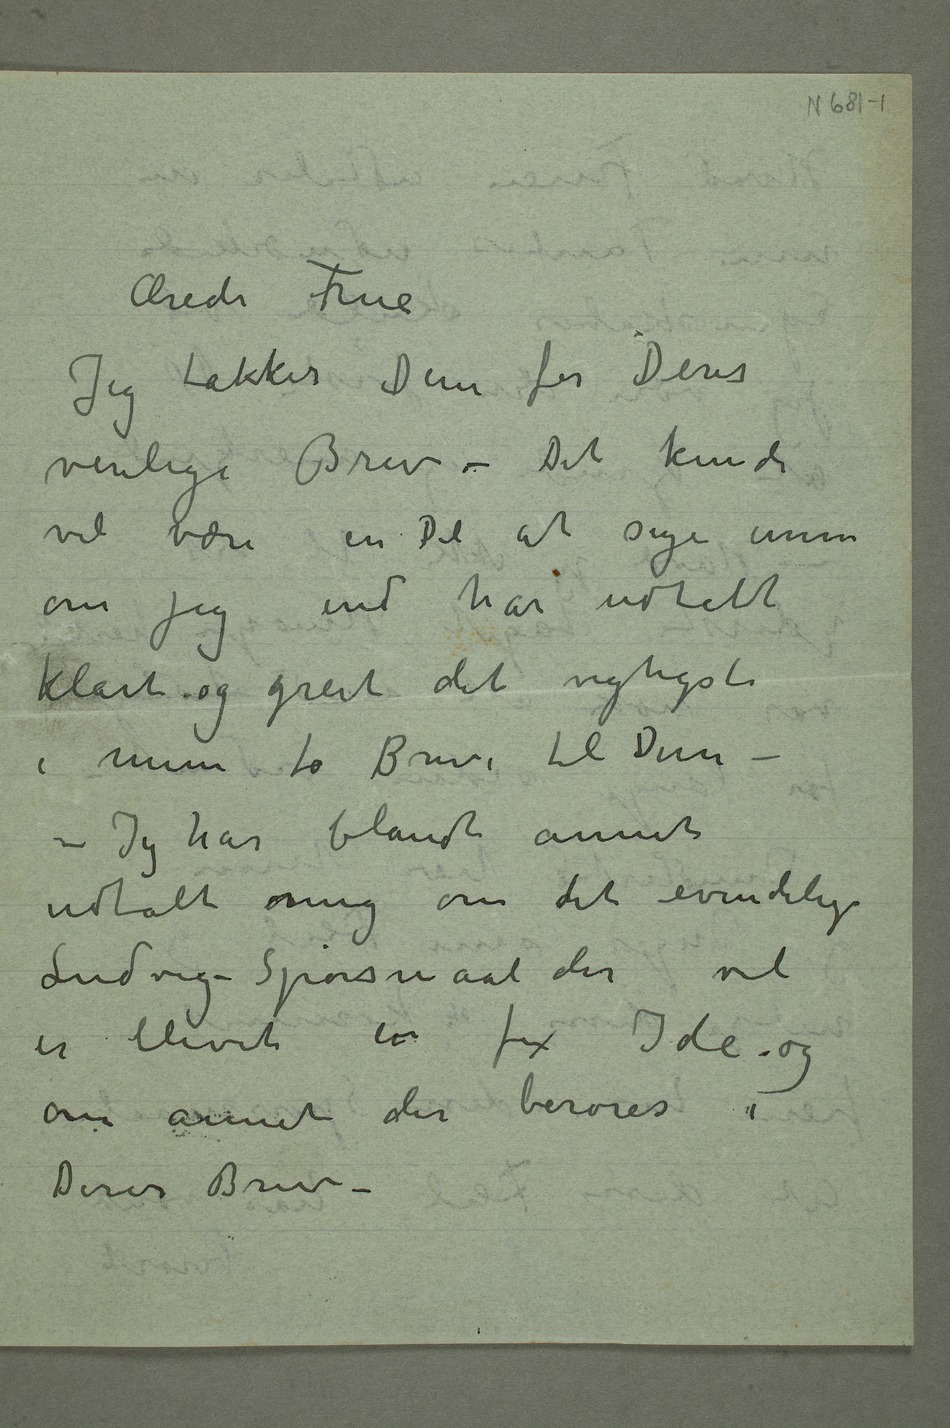 N 681-1
Ærede Frue
Jeg takker Dem for Deres
venlige Brev – Det kunde
vel være en Del at sige men
om jeg end har udtalt
klart og greit det vigtigste
i mine to Breve til Dem –
– Jeg har blandt annet
udtalt mig om det evindelige
Ludvig-Spørsmaal der vel
er blevet en fix Ide og
om annet der berøres i
Deres Brev –